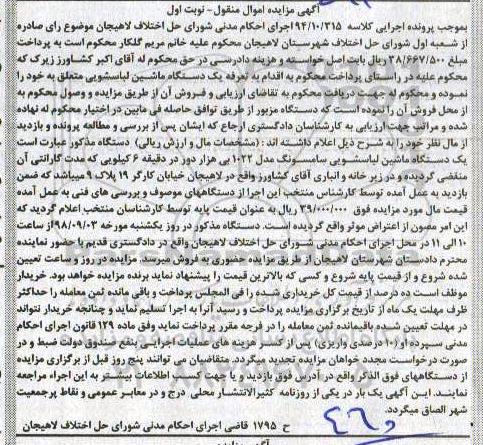 آگهی مزایده اموال منقول - نوبت اول
بموجب پرونده اجرایی کلاسه ۹۴/۱۰/۳۱۵اجرای احکام مدنی شورای حل اختلاف لاهیجان موضوع رای صادره
از شعبه اول شورای حل اختلاف شهرستان لاهیجان محکوم علیه خانم مریم گلکار محکوم است به پرداخت
مبلغ ۳۸/۶۶۷/۵۰۰ ریال بابت اصل خواسته و هزینه دادرسی در حق محکوم له آقای اکبر کشاورز زیرک که
محکوم علیه در راستای پرداخت محکوم به اقدام به تعرفه یک دستگاه ماشین لباسشویی متعلق به خود را
نموده و محکوم له جهت دریافت محکوم به تقاضای ارزیابی و فروش آن از طریق مزایده و وصول محکوم به
از محل فروش آن را نموده است که دستگاه مزبور از طریق توافق حاصله فی مابین در اختیار محکوم له نهاده
شده و مراتب جهت ارزیابی به کارشناسان دادگستری ارجاع که ایشان پس از بررسی و مطالعه پرونده و بازدید
از مال نظر خود را به شرح ذیل اعلام داشته اند : (مشخصات مال و ارزش ریالی) دستگاه مذکور عبارت است
یک دستگاه ماشین لباسشویی سامسونگ مدل ۱۰۲۲ بی هزار دور در دقیقه ۶ کیلویی که مدت گارانتی آن
منقضی گردیده و در زیر خانه و انباری آقای کشاورز واقع در لاهیجان خیابان کارگر ۱۹ پلاک ۹ میباشد که ضمن
بازدید به عمل آمده توسط کارشناس منتخب این اجرا از دستگاههای موصوف و بررسی های فنی به عمل آمده
قیمت مال مورد مزایده فوق ۳۹/۰۰۰/۰۰۰ ریال به عنوان قیمت پایه توسط کارشناسان منتخب اعلام گردید که
این امر مصون از اعتراض موثر واقع گردیده است. دستگاه مذکور در روز یکشنبه مورخه ۹۸/۰۹/۰۳از ساعت
۱۰ الی ۱۱ در محل اجرای احکام مدنی شورای حل اختلاف لاهیجان واقع در دادگستری قدیم با حضور نماینده
محترم دادستان شهرستان لاهیجان از طریق مزایده حضوری به فروش میرسد. مزایده در روز و ساعت تعیین
شده شروع و از قیمت پایه شروع و کسی که بالاترین قیمت را پیشنهاد نماید برنده مزایده خواهد بود. خریدار
موظف است ده درصد از قیمت کل خریداری شده را فی المجلس پرداخت و باقی مانده ثمن معامله را حداکثر
ظرف مهلت یک ماه از تاریخ برگزاری مزایده پرداخت و رسید آنرا به اجرا تسلیم نماید و چنانچه خریدار نتواند
در مهلت تعیین شده باقیمانده ثمن معامله را در فرجه مقرر پرداخت نماید وفق ماده ۱۲۹ قانون اجرای احکام
مدنی سپرده او(۱۰ درصدی واریزی) پس از کسر هزینه های عملیات اجرایی بنفع صندوق دولت ضبط و در
صورت درخواست مجدد خواهان مزایده تجدید میگردد. متقاضیان می توانند پنج روز قبل از برگزاری مزایده
از دستگاههای فوق الذکر واقع در آدرس فوق بازدید و یا جهت کسب اطلاعات بیشتر به این اجراء مراجعه
نمایند. این آگهی یک بار در یکی از روزنامه کثیرالانتشار محلی درج و در معابر عمومی و نقاط پرجمعیت
شهر الصاق میگردد.
ح ۱۷۹۵ قاضی اجرای احکام مدنی شورای حل اختلاف لاهیجان